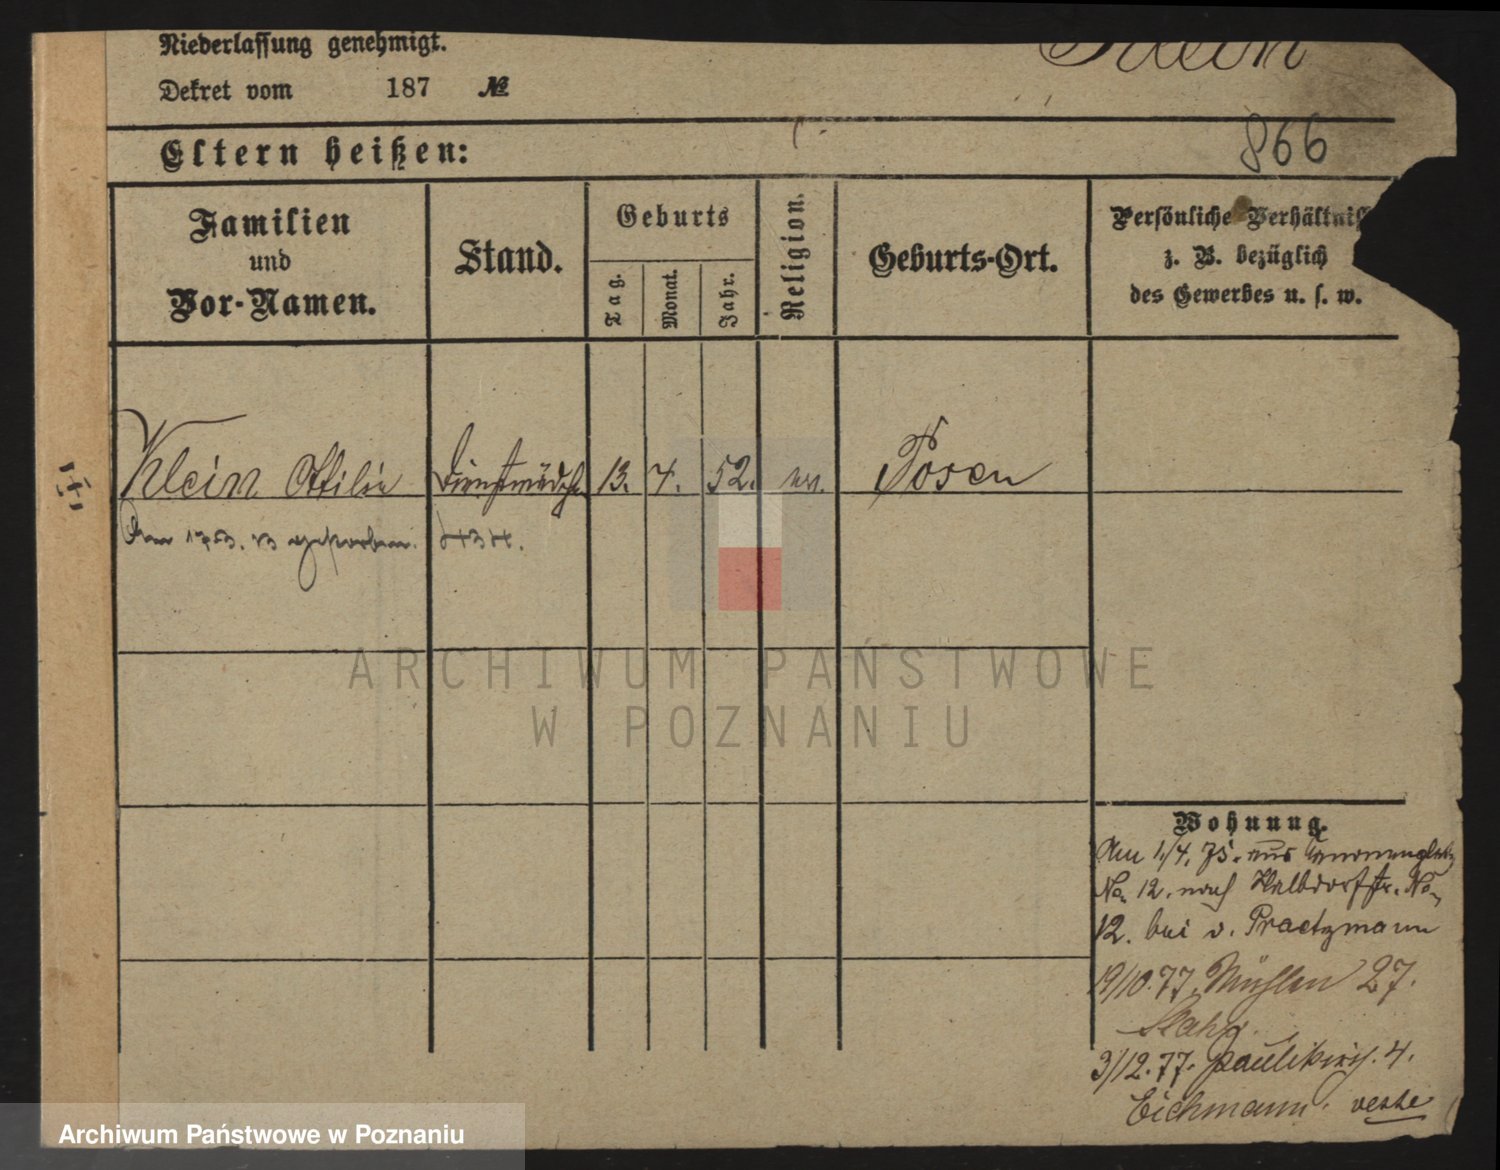 Niederlassung genehmigt.
Klein
Dekret vom 187 №
866
Eltern heißen:
Familien und Vor-Namen.
Stand.
Geburts
Tag.
Monat.
Jahr.
Religion.
Geburts-Ort.
Persönliche Verhältniss
z. B. bezüglich
des Gewerbes u. s. w.
Klein Ottilie Dienstmädchen 13. 4. 52. ev. Posen
Am gestorben.
ARCHIWUM PAŃSTWOWE
W POZNANIU
Wohnung.
Am 1/4. 75. aus
No. 12. nach Halbdorfstr. No.
12. bei v. Praetzmann
19/10.77. Mühlen 27.
3/12.77. Paulikirch. 4.
Eichmann.
Archiwum Państwowe w Poznaniu